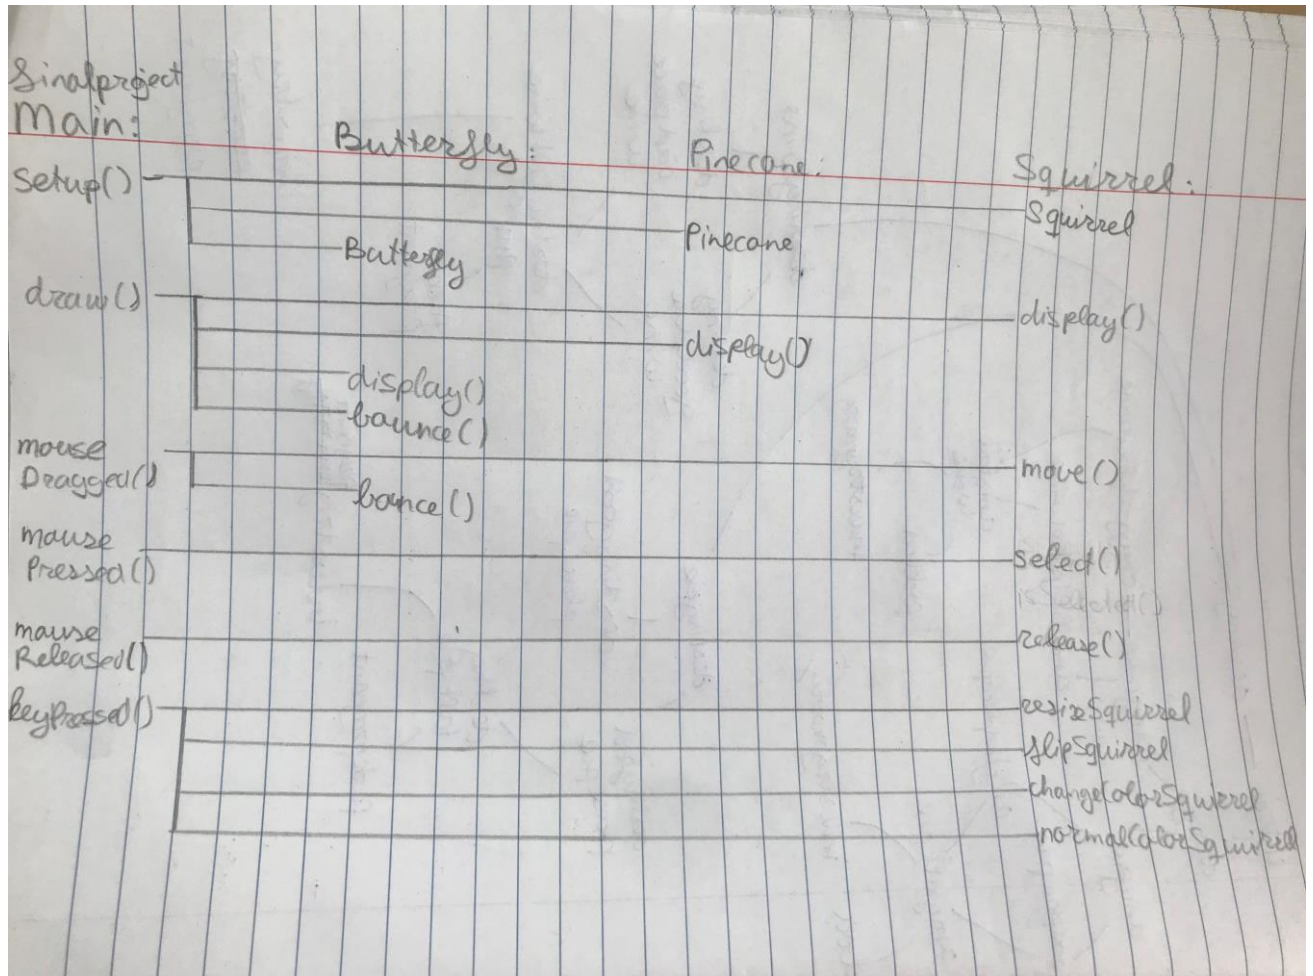 finalproject
Main:
Butterfly:
Pinecone:
Squirrel:
setup()
Squirrel
Pinecone
Butterfly
draw()
display()
display()
display()
bounce()
mouse
Dragged()
move()
bounce()
mouse
Pressed()
select()
isSelected()
mouse
Released()
release()
keyPressed()
resizeSquirrel
flipSquirrel
changeColorSquirrel
normalColorSquirrel